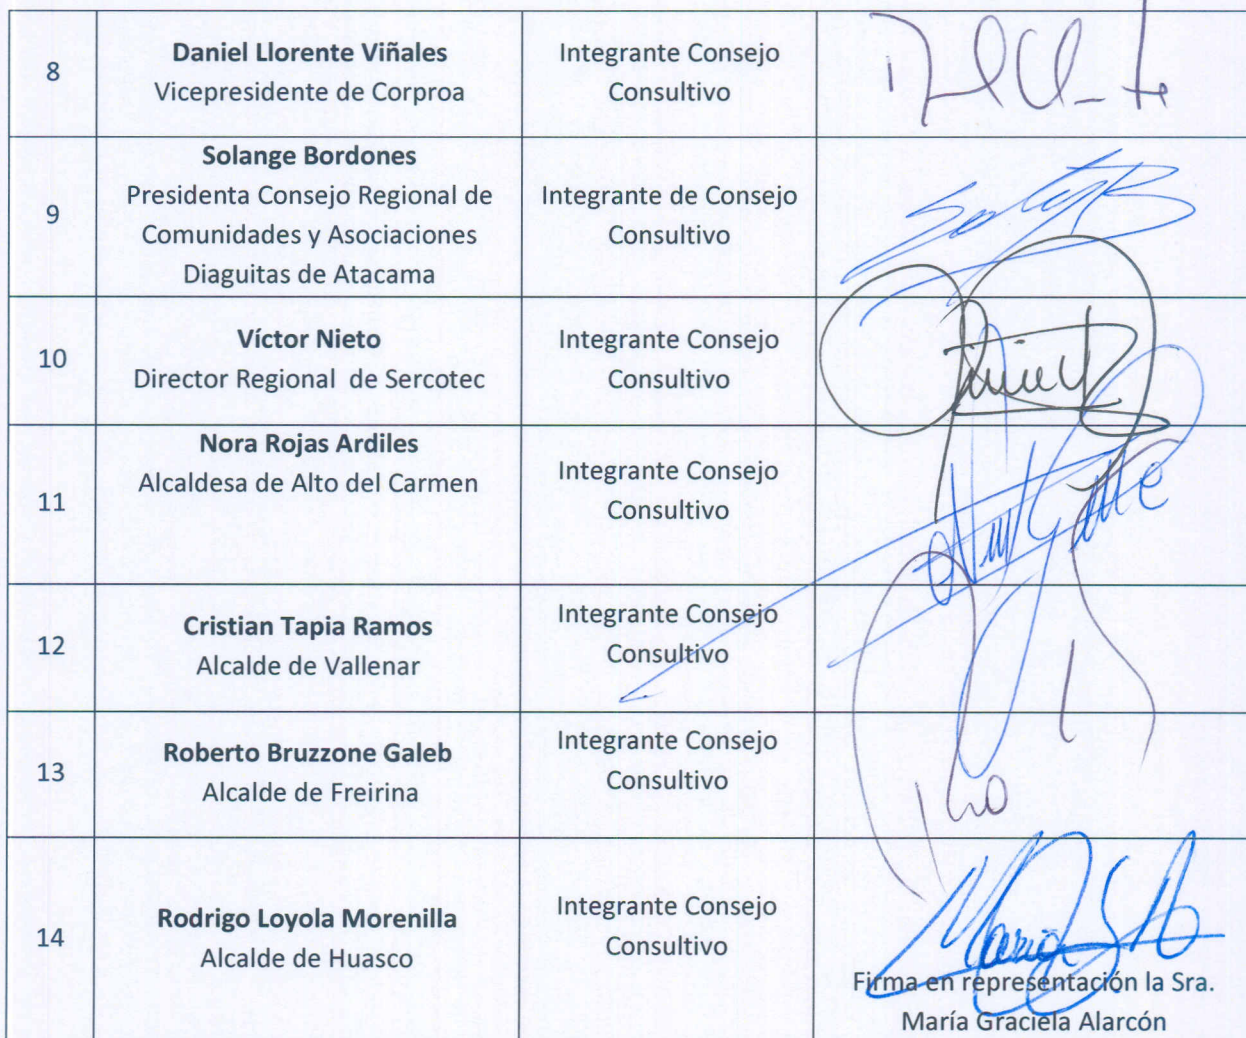 8
Daniel Llorente Viñales
Vicepresidente de Corproa
Integrante Consejo
Consultivo
9
Solange Bordones
Presidenta Consejo Regional de
Comunidades y Asociaciones
Diaguitas de Atacama
Integrante de Consejo
Consultivo
10
Víctor Nieto
Director Regional de Sercotec
Integrante Consejo
Consultivo
11
Nora Rojas Ardiles
Alcaldesa de Alto del Carmen
Integrante Consejo
Consultivo
12
Cristian Tapia Ramos
Alcalde de Vallenar
Integrante Consejo
Consultivo
13
Roberto Bruzzone Galeb
Alcalde de Freirina
Integrante Consejo
Consultivo
14
Rodrigo Loyola Morenilla
Alcalde de Huasco
Integrante Consejo
Consultivo
Firma en representación la Sra.
María Graciela Alarcón